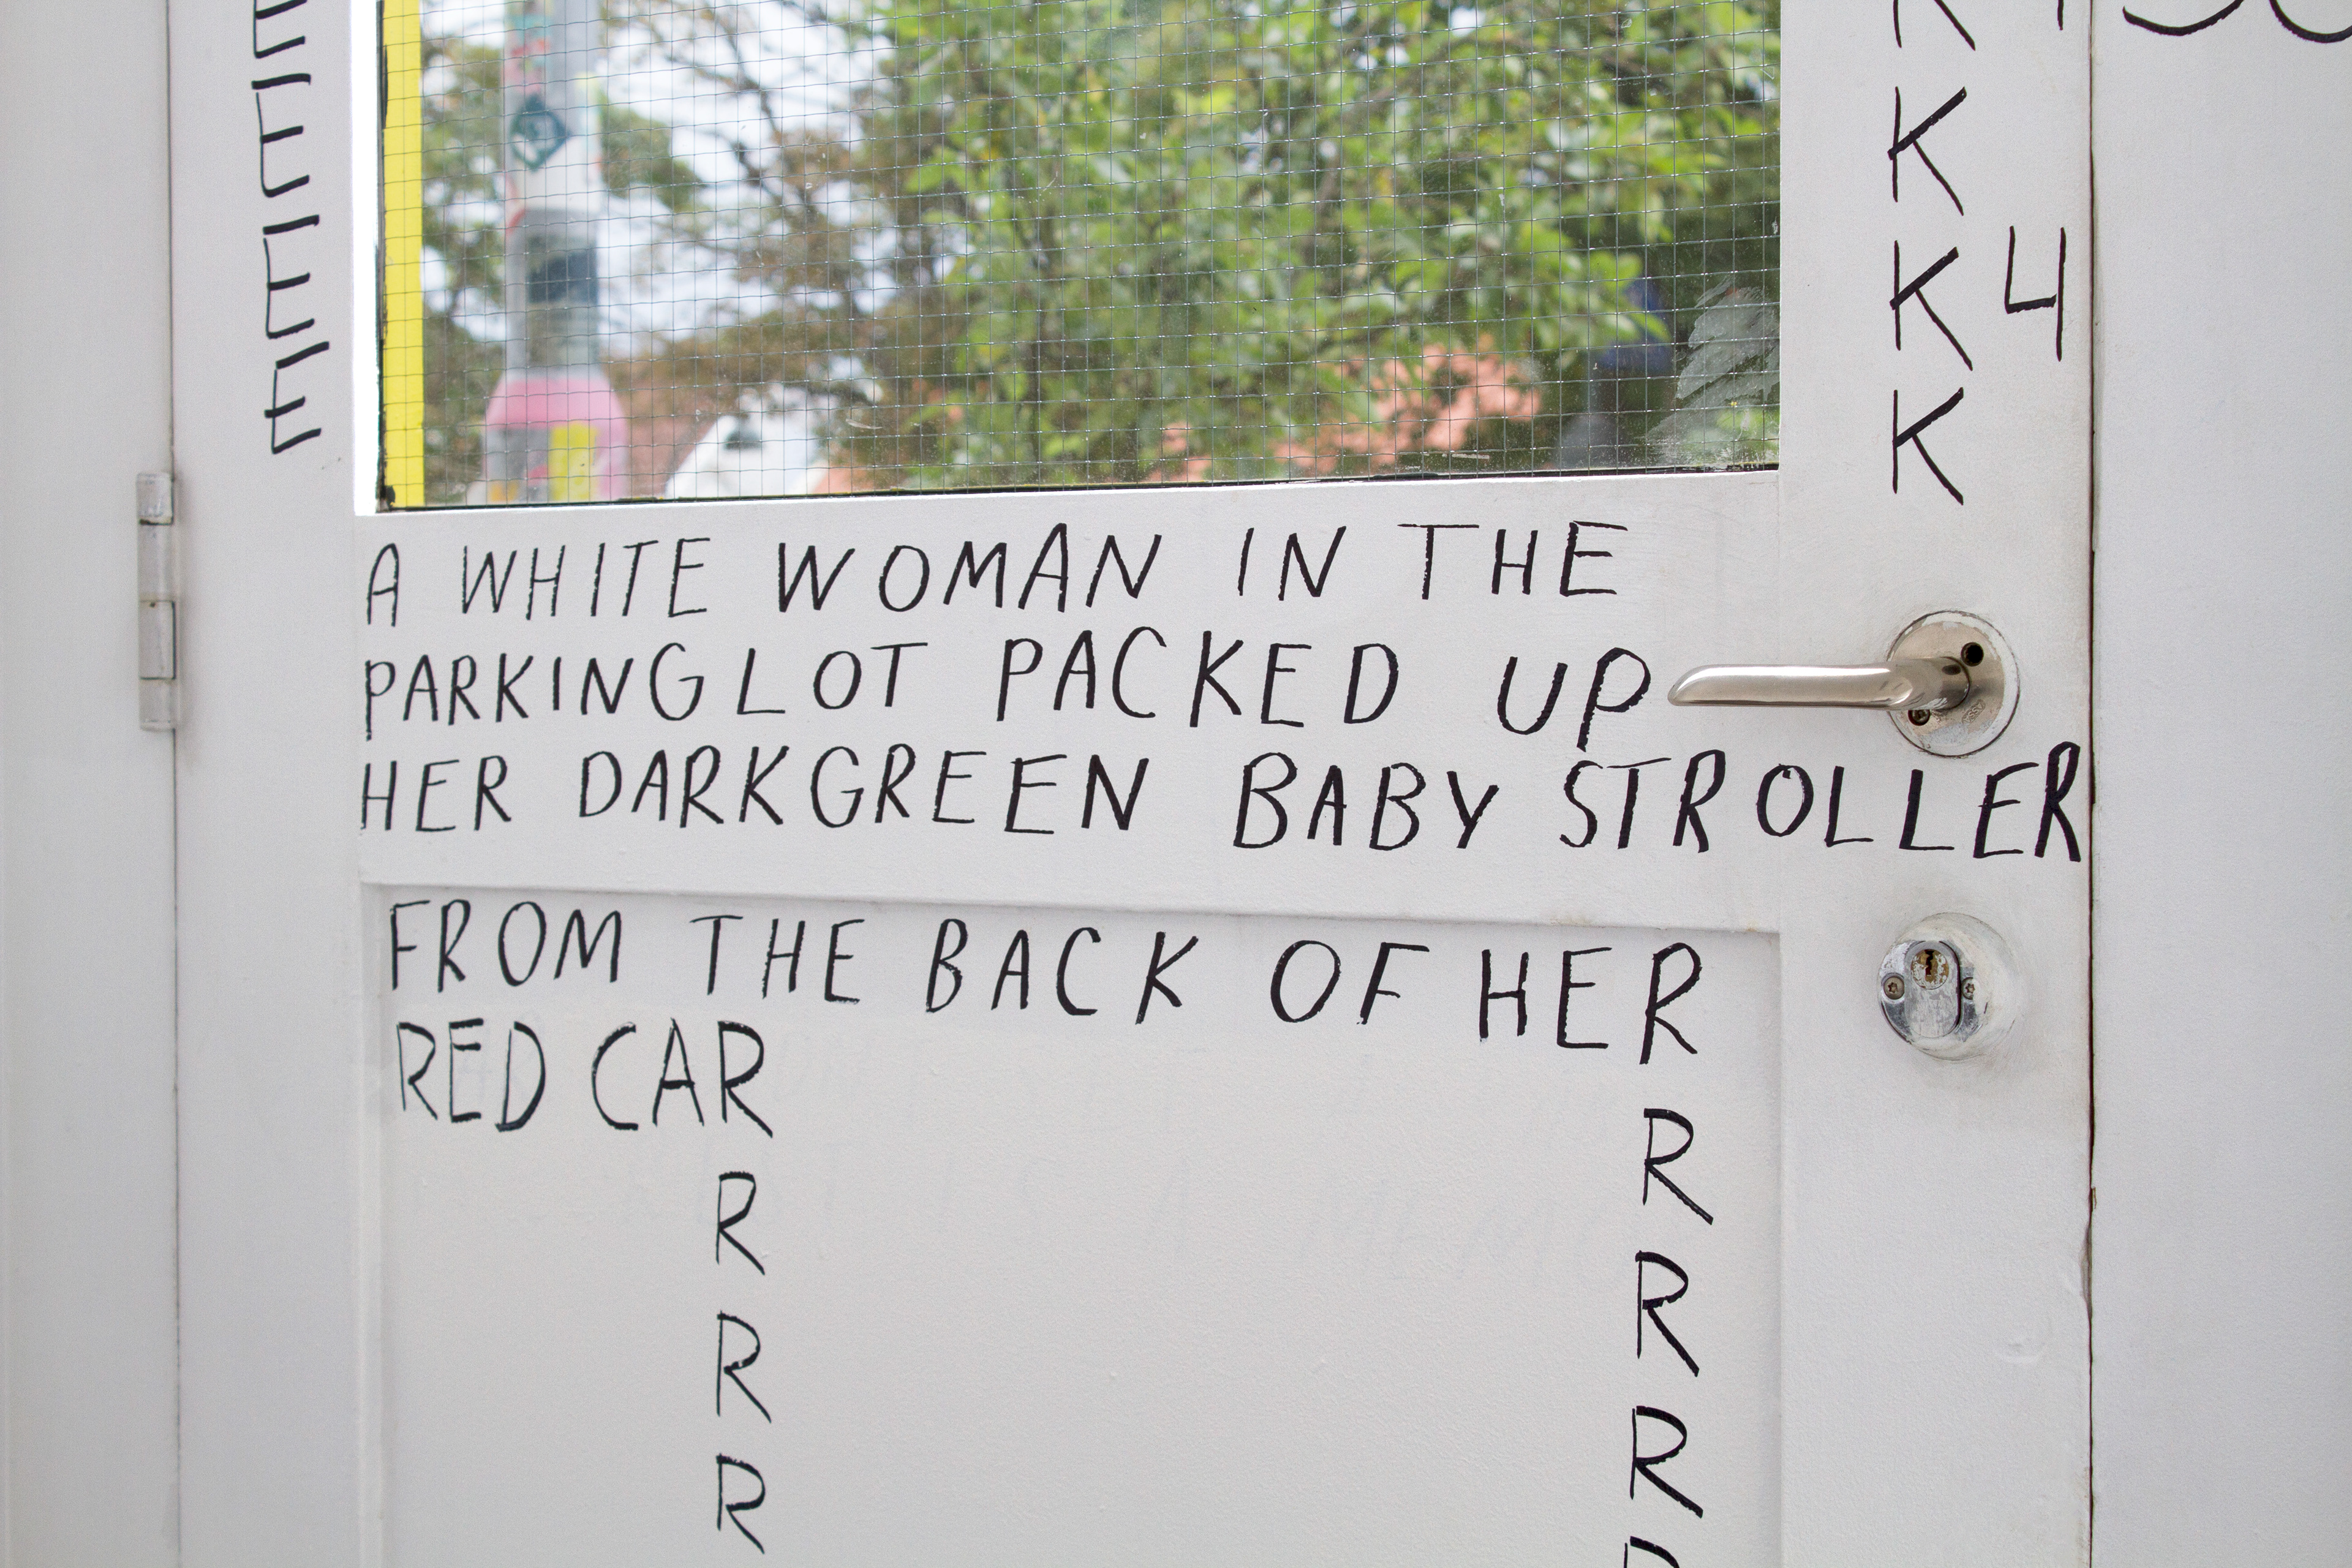 E
E
E
E
K
K
K
4
K
A WHITE WOMAN IN THE
PARKINGLOT PACKED UP
HER DARKGREEN BABY STROLLER
FROM THE BACK OF HER
RED CAR
R
R
R
R
R
R